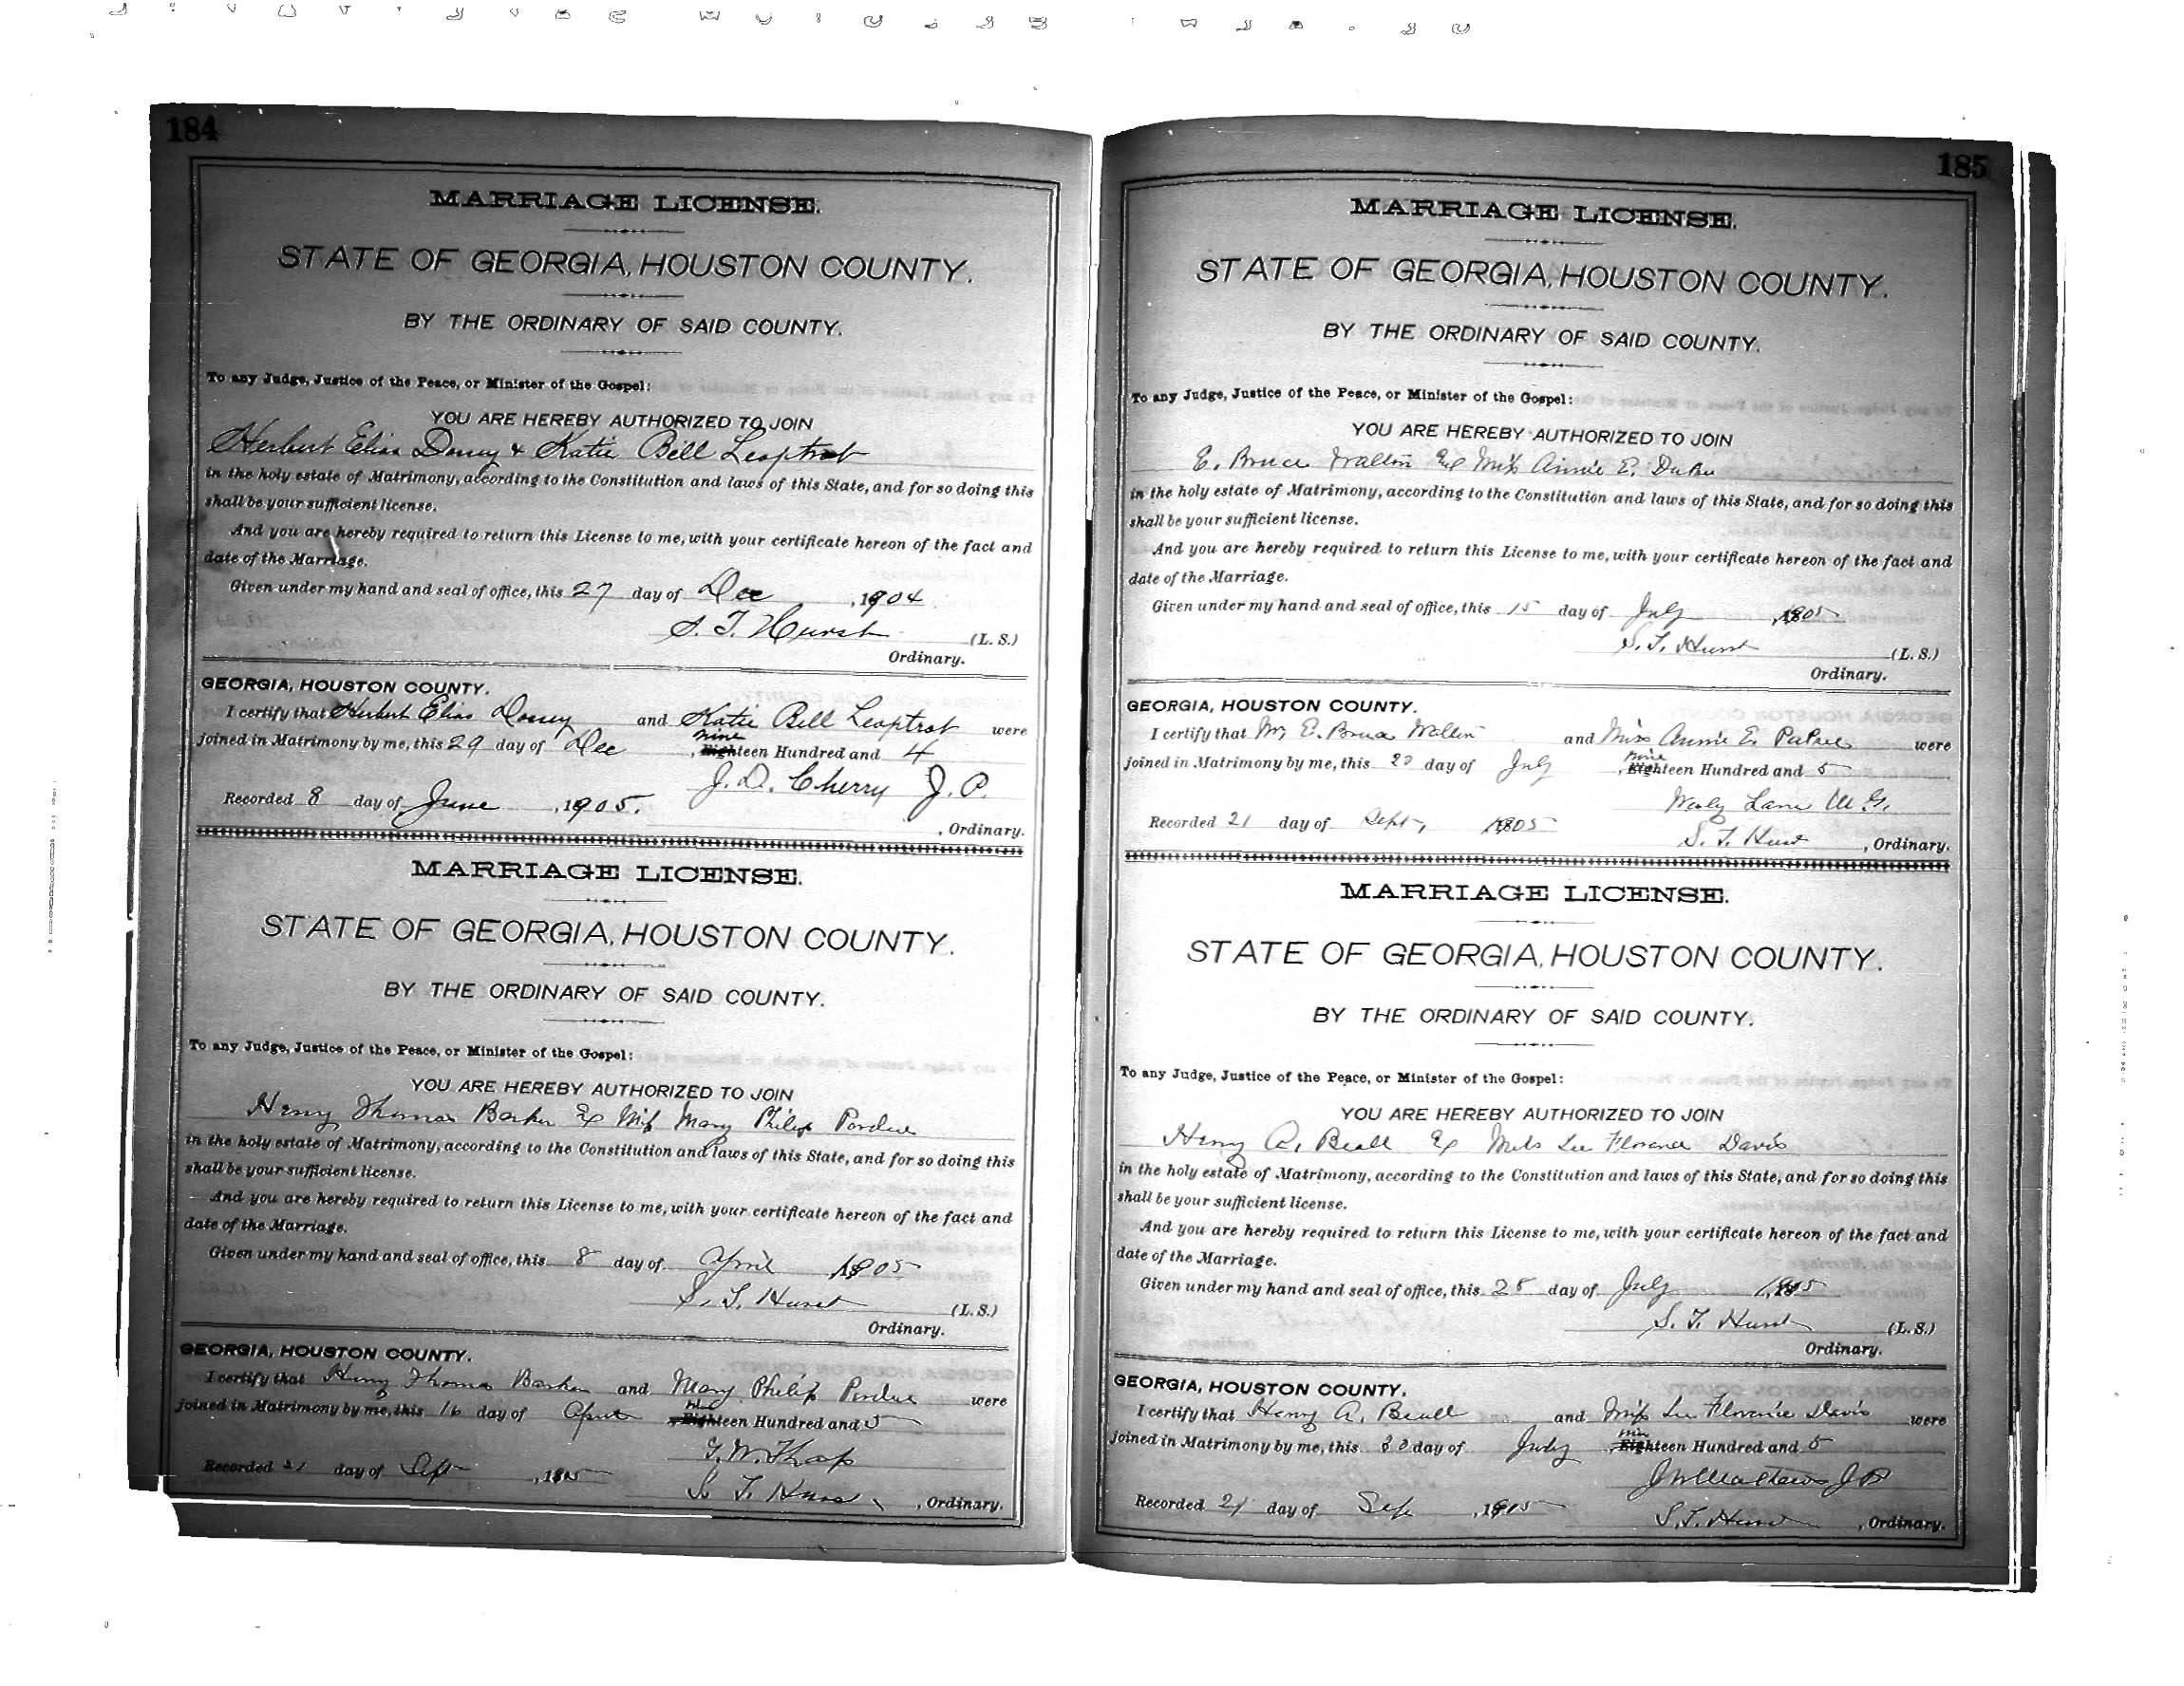 184
MARRIAGE LICENSE.
STATE OF GEORGIA, HOUSTON COUNTY.
BY THE ORDINARY OF SAID COUNTY.
To any Judge, Justice of the Peace, or Minister of the Gospel:
YOU ARE HEREBY AUTHORIZED TO JOIN
Herbert Elias & Katie Bell Leaptrot
in the holy estate of Matrimony, according to the Constitution and laws of this State, and for so doing this
shall be your sufficient license.
And you are hereby required to return this License to me, with your certificate hereon of the fact and
date of the Marriage.
Given under my hand and seal of office, this 27 day of Dec , 1904
S. T. Hurst (L. S.)
Ordinary.
GEORGIA, HOUSTON COUNTY.
I certify that Herbert Elias and Katie Bell Leaptrot were
nine
joined in Matrimony by me, this 29 day of Dec , Eighteen Hundred and 4
J. D. Cherry J. P.
Recorded 8 day of June , 1905.
, Ordinary.
MARRIAGE LICENSE.
STATE OF GEORGIA, HOUSTON COUNTY.
BY THE ORDINARY OF SAID COUNTY.
To any Judge, Justice of the Peace, or Minister of the Gospel:
YOU ARE HEREBY AUTHORIZED TO JOIN
Henry Thomas Barker & Miss Mary Philip Perdue
in the holy estate of Matrimony, according to the Constitution and laws of this State, and for so doing this
shall be your sufficient license.
And you are hereby required to return this License to me, with your certificate hereon of the fact and
date of the Marriage.
Given under my hand and seal of office, this 8 day of April 1905
S. T. Hurst (L. S.)
Ordinary.
GEORGIA, HOUSTON COUNTY.
I certify that Henry Thomas Barker and Mary Philip Perdue were
joined in Matrimony by me, this 16 day of April Eighteen Hundred and 5
Recorded 21 day of Sept , 1905
S. T. Hurst , Ordinary.
185
MARRIAGE LICENSE.
STATE OF GEORGIA, HOUSTON COUNTY.
BY THE ORDINARY OF SAID COUNTY.
To any Judge, Justice of the Peace, or Minister of the Gospel:
YOU ARE HEREBY AUTHORIZED TO JOIN
E. Bruce Walton & Miss Annie E.
in the holy estate of Matrimony, according to the Constitution and laws of this State, and for so doing this
shall be your sufficient license.
And you are hereby required to return this License to me, with your certificate hereon of the fact and
date of the Marriage.
Given under my hand and seal of office, this 15 day of July , 1905
S. T. Hurst (L. S.)
Ordinary.
GEORGIA, HOUSTON COUNTY.
I certify that Mr E. Bruce Walton and Miss Annie E. were
nine
joined in Matrimony by me, this day of July , Eighteen Hundred and 5
Lane M. G.
Recorded 21 day of Sept, 1905
S. T. Hurst , Ordinary.
MARRIAGE LICENSE.
STATE OF GEORGIA, HOUSTON COUNTY.
BY THE ORDINARY OF SAID COUNTY.
To any Judge, Justice of the Peace, or Minister of the Gospel:
YOU ARE HEREBY AUTHORIZED TO JOIN
Henry A. Beall & Miss Lee Florence Davis
in the holy estate of Matrimony, according to the Constitution and laws of this State, and for so doing this
shall be your sufficient license.
And you are hereby required to return this License to me, with your certificate hereon of the fact and
date of the Marriage.
Given under my hand and seal of office, this 28 day of July , 1905
S. T. Hurst (L. S.)
Ordinary.
GEORGIA, HOUSTON COUNTY.
I certify that Henry A. Beall and Miss Lee Florence Davis were
nine
joined in Matrimony by me, this 30 day of July , Eighteen Hundred and 5
Mathews J P
Recorded 21 day of Sep , 1905
S. T. Hurst , Ordinary.